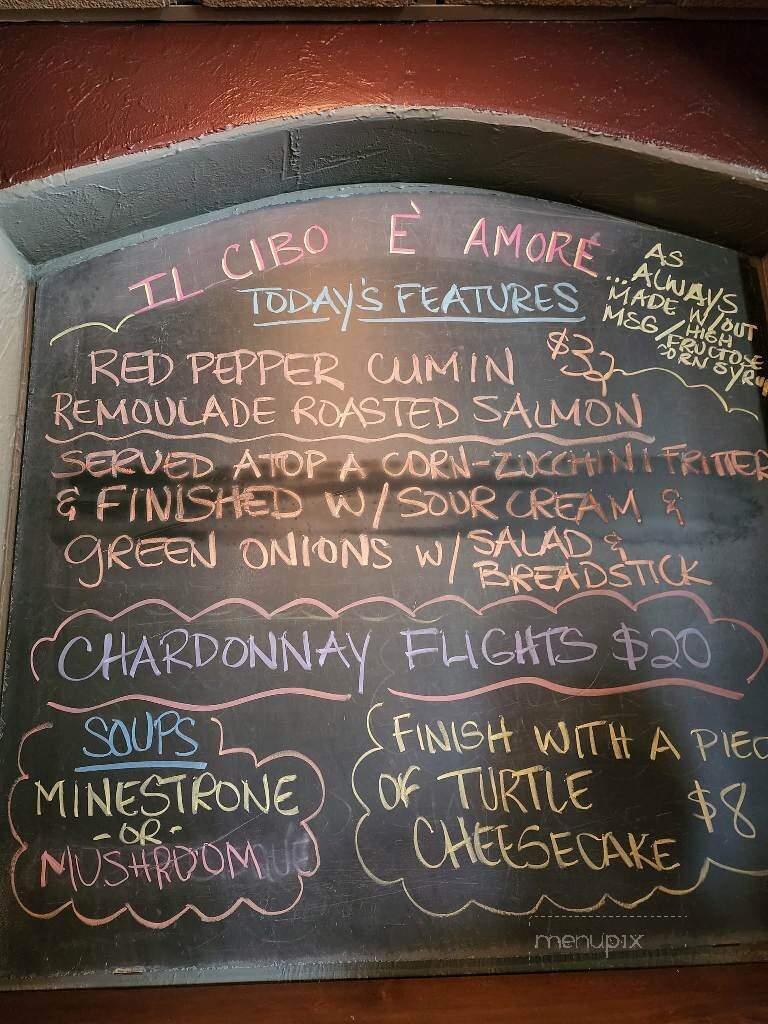 IL CIBO È AMORE
TODAY'S FEATURES
AS
...ALWAYS
MADE W/OUT
MSG/HIGH
FRUCTOSE
CORN SYRUP
RED PEPPER CUMIN $32
REMOULADE ROASTED SALMON
SERVED ATOP A CORN-ZUCCHINI FRITTER
& FINISHED W/SOUR CREAM &
GREEN ONIONS W/ SALAD &
BREADSTICK
CHARDONNAY FLIGHTS $20
SOUPS
MINESTRONE
-OR-
MUSHROOM
FINISH WITH A PIEC
OF TURTLE $8
CHEESECAKE
menupix